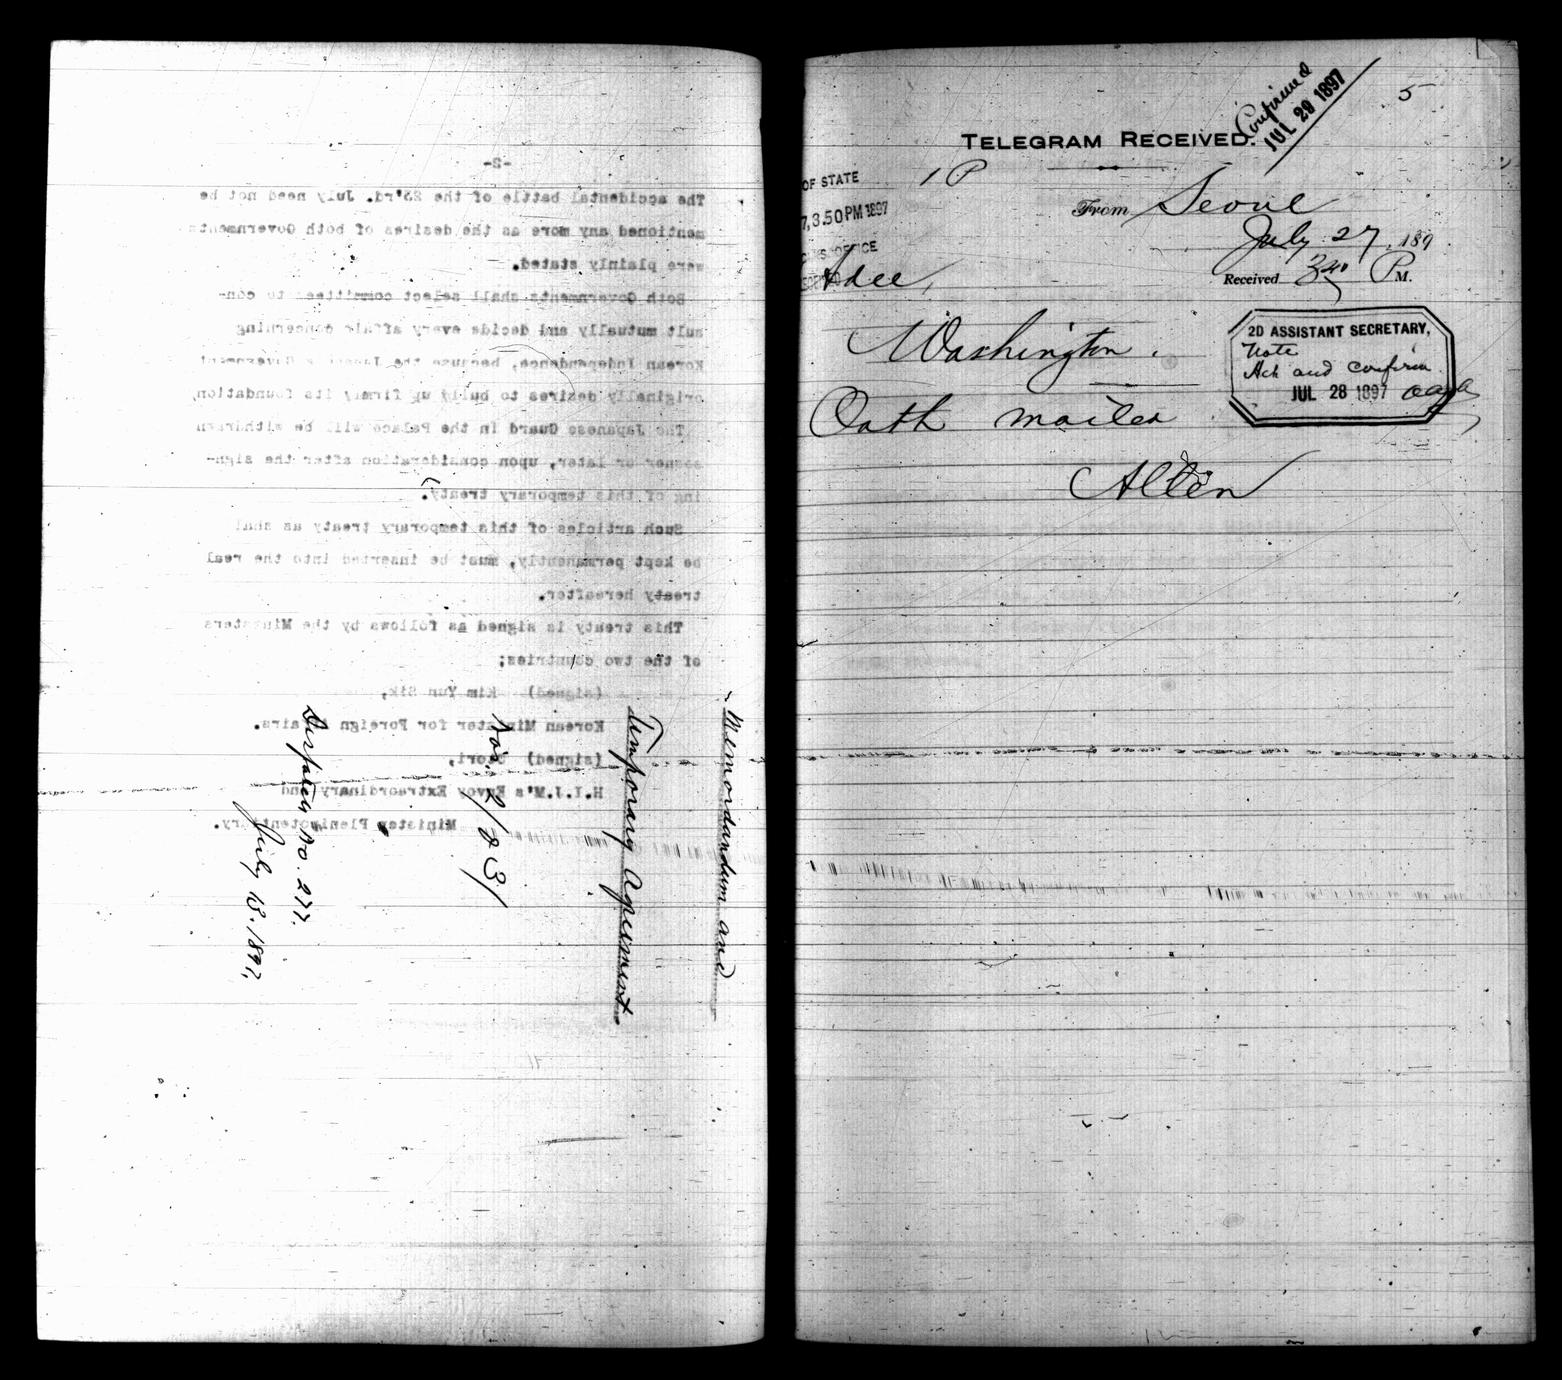 -2-
The accidental battle of the 23'rd. July need not be
mentioned any more as the desires of both Governments
were plainly stated.
Both Governments shall select committees to con-
sult mutually and decide every affair concerning
Korean Independence, because the Japanese Government
originally desires to build up firmly its foundation,
The Japanese Guard in the Palace will be withdrawn
sooner or later, upon consideration after the sign-
ing of this temporary treaty.
Such articles of this temporary treaty as shall
be kept permanently, must be inserted into the real
treaty hereafter.
This treaty is signed as follows by the Ministers
of the two countries;
(signed) Kim Yun Sik,
Korean Minister for Foreign Affairs.
(signed) Otori,
H.I.J.M's Envoy Extraordinary and
Minister Plenipotentiary.
Memorandum and
Temporary Agreement
Despatch No. 277.
July 15. 1897.
5
Confirmed
JUL 29 1897
TELEGRAM RECEIVED.
1 P
OF STATE
7, 3.50 PM 1897
From Seoul
July 27, 1897
Received 3 40 P M.
Adee,
Washington.
2D ASSISTANT SECRETARY,
Note
Ack and confirm
JUL 28 1897
Oath mailed
Allen